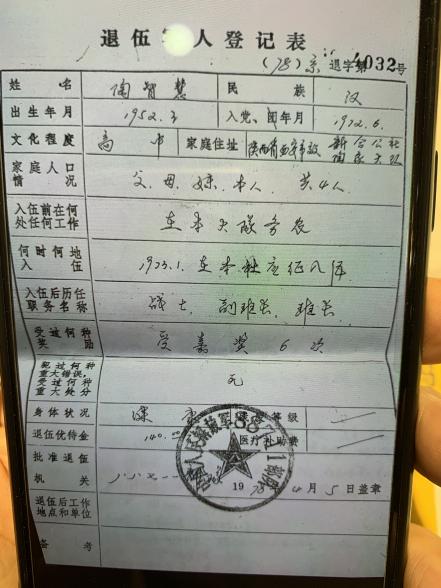 退伍军人登记表
(78)京 退字第4032号
姓名 陶智慧 民族 汉
出生年月 1952.3 入党、团年月 1972.6.
文化程度 高中 家庭住址 陕西省西安市 新合公社
家庭人口情况 父、母、妹、本人、共4人
入伍前在何处任何工作 在本大队务农
何时何地入伍 1973.1. 在本社应征入伍
入伍后历任职务名称 战士、副班长、班长
受过何种奖励 受嘉奖6次
犯过何种重大错误,受过何种重大处分 无
身体状况 等级
退伍优待金 140. 医疗补助费
批准退伍机关 1978年4月5日盖章
退伍后工作地点和单位
备考